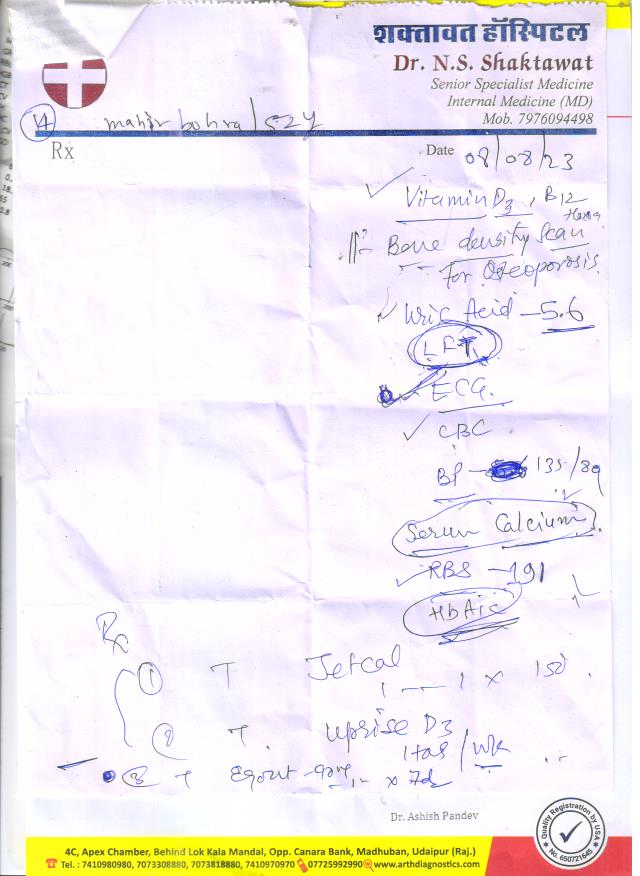 शक्तावत हॉस्पिटल
Dr. N.S. Shaktawat
Senior Specialist Medicine
Internal Medicine (MD)
Mob. 7976094498
14 mahir bohra / 52y
Rx
Date 08/08/23
Vitamin D3, B12
Bone density Scan
For Osteoporosis.
Uric Acid - 5.6
LFT
ECG.
CBC
BP - 135/89
Serum Calcium
RBS - 191
HbA1c
Rx
1 T Jetcal
1 — 1 x 15d.
2 T. Uprise D3
1 tab / wk
3 T x 7d
Dr. Ashish Pandev
Quality Registration by USA
No. 650721645
4C, Apex Chamber, Behind Lok Kala Mandal, Opp. Canara Bank, Madhuban, Udaipur (Raj.)
Tel. : 7410980980, 7073308880, 7073818880, 7410970970 07725992990 www.arthdiagnostics.com